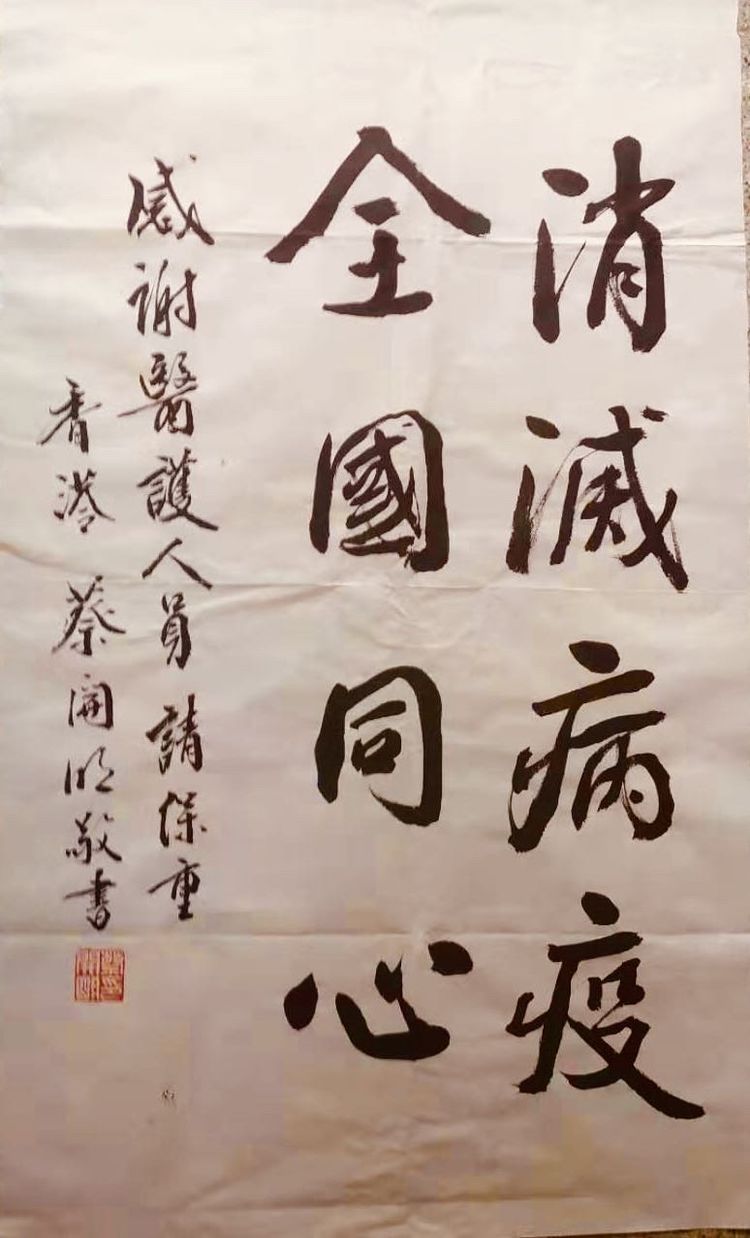 消滅病疫
全國同心
感謝醫護人員請保重
香港蔡開明敬書